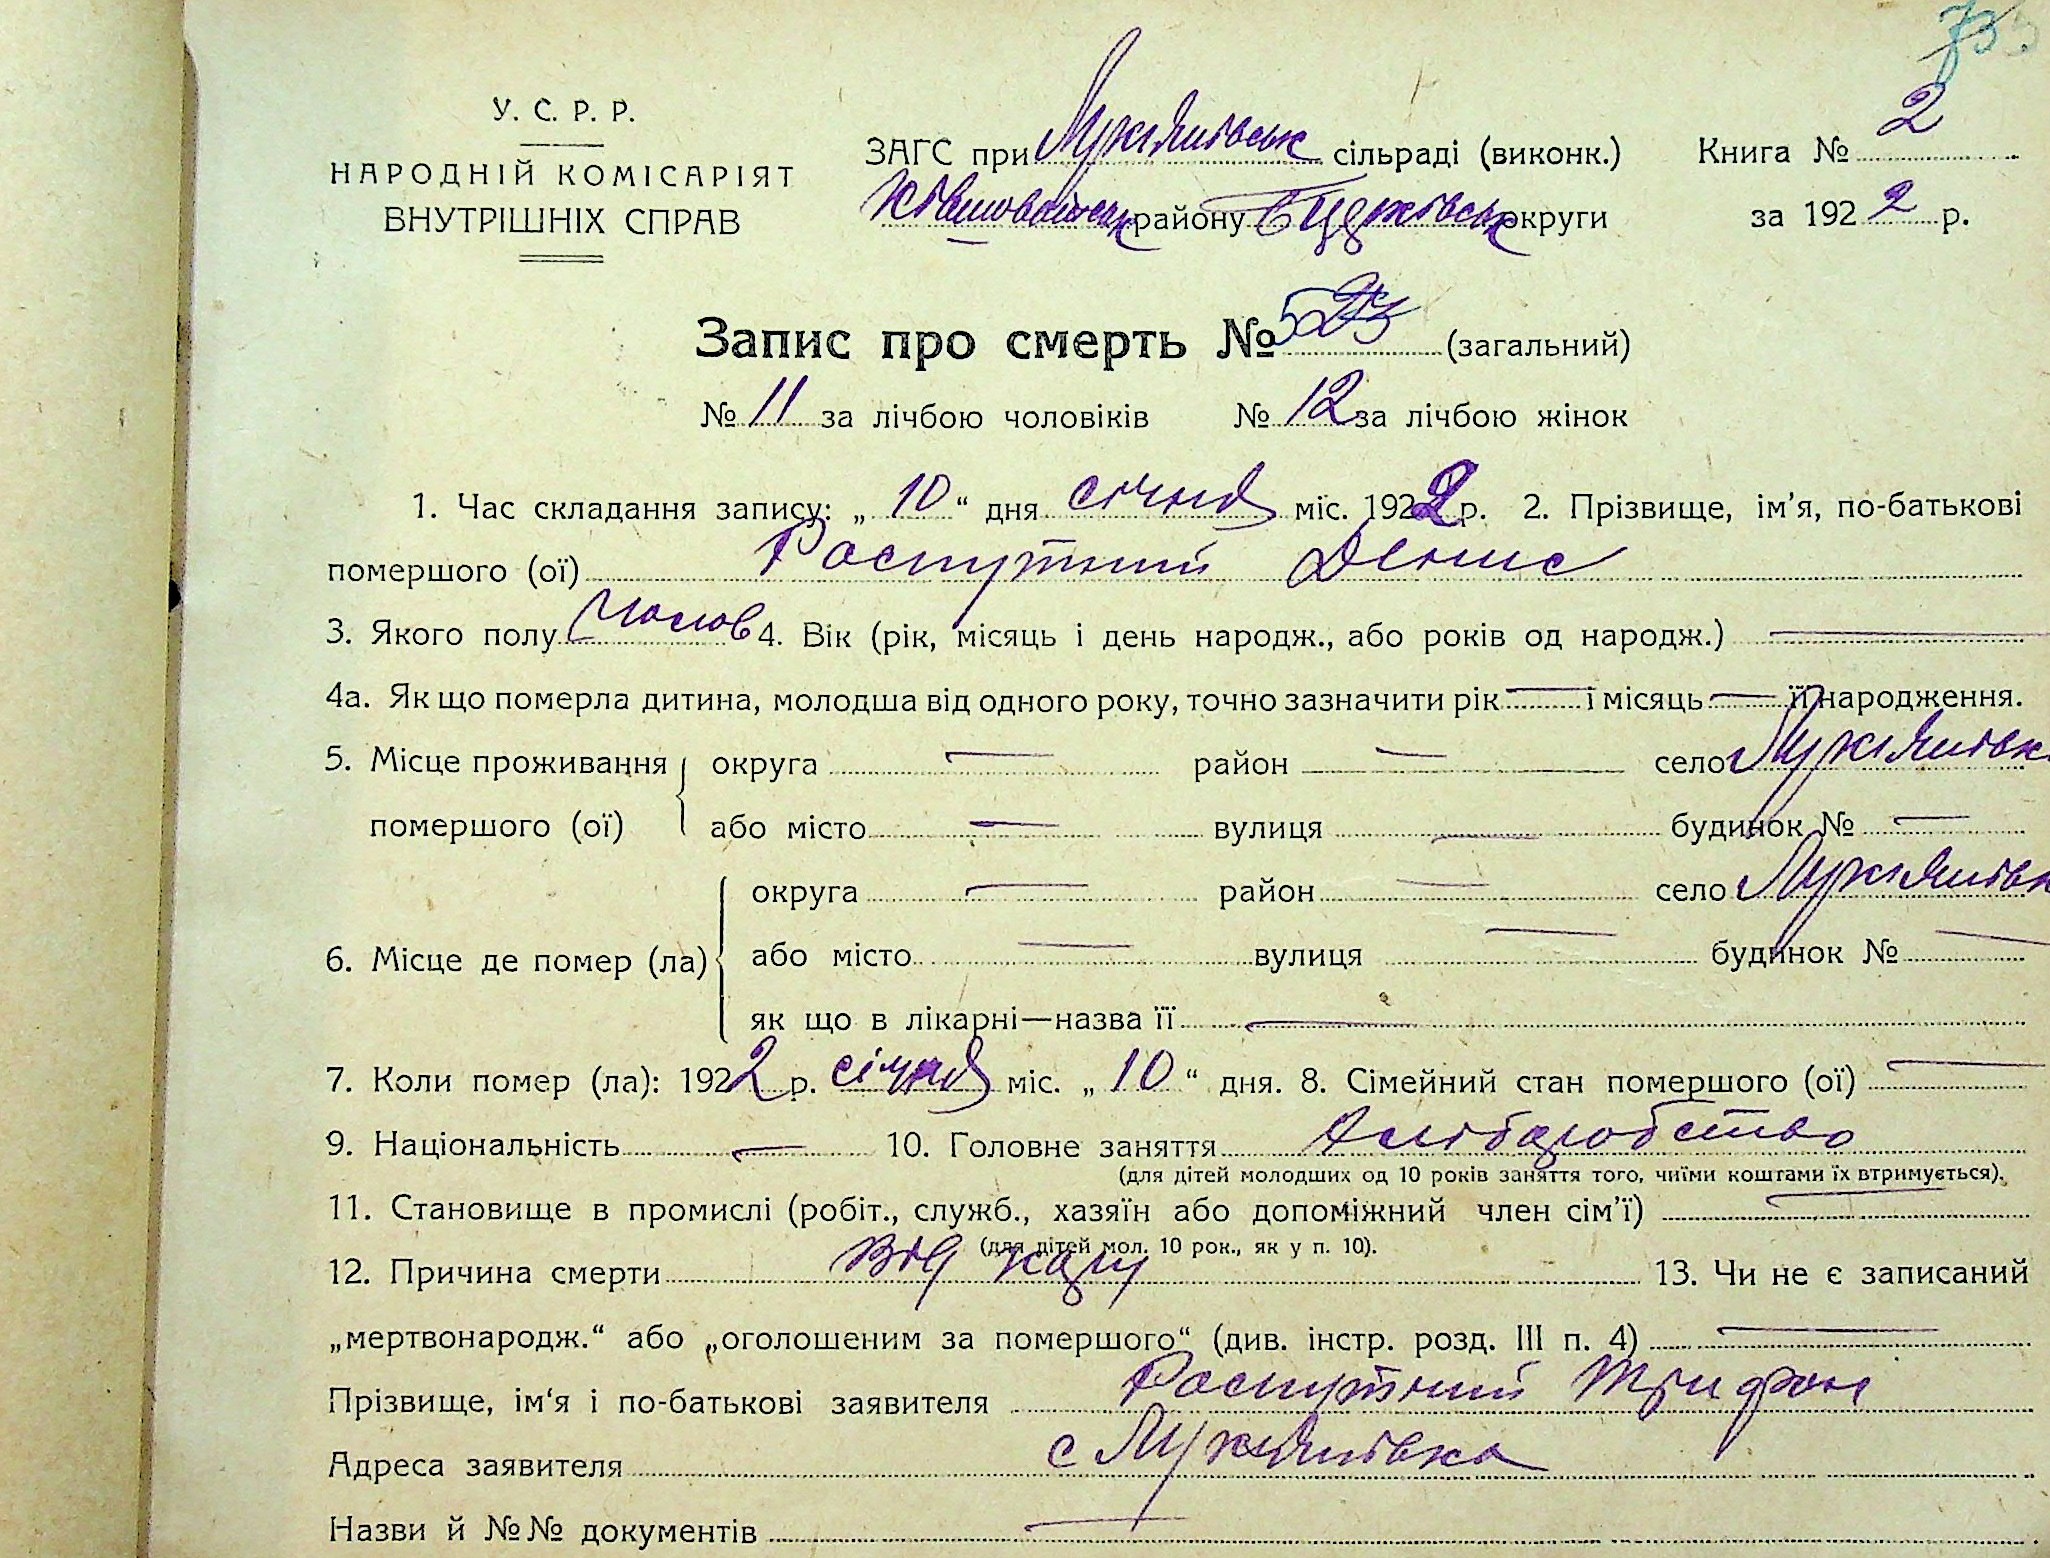 У. С. Р. Р.
НАРОДНІЙ КОМІСАРІЯТ
ВНУТРІШНІХ СПРАВ
ЗАГС при Лукʼянівськ сільраді (виконк.)
району округи
Книга № 2
за 1922 р.
Запис про смерть № 523 (загальний)
№ 11 за лічбою чоловіків № 12 за лічбою жінок
1. Час складання запису: „ 10 “ дня січня міс. 1922 р. 2. Прізвище, ім'я, по-батькові
помершого (ої) Распутний Денис
3. Якого полу чолов 4. Вік (рік, місяць і день народж., або років од народж.) —
4а. Як що померла дитина, молодша від одного року, точно зазначити рік — і місяць — її народження.
5. Місце проживання округа — район — село Лукʼянівка
помершого (ої) або місто — вулиця — будинок № —
округа — район — село Лукʼянівка
6. Місце де помер (ла) або місто — вулиця — будинок № —
як що в лікарні—назва її —
7. Коли помер (ла): 1922 р. січня міс. „ 10 “ дня. 8. Сімейний стан помершого (ої) —
9. Національність — 10. Головне заняття хліборобство
(для дітей молодших од 10 років заняття того, чиїми коштами їх втримується).
11. Становище в промислі (робіт., служб., хазяїн або допоміжний член сім'ї) —
(для дітей мол. 10 рок., як у п. 10).
12. Причина смерти від кору 13. Чи не є записаний
„мертвонародж.“ або „оголошеним за помершого“ (див. інстр. розд. III п. 4) —
Прізвище, ім'я і по-батькові заявителя Распутний Трифон
Адреса заявителя с Лукʼянівка
Назви й №№ документів —